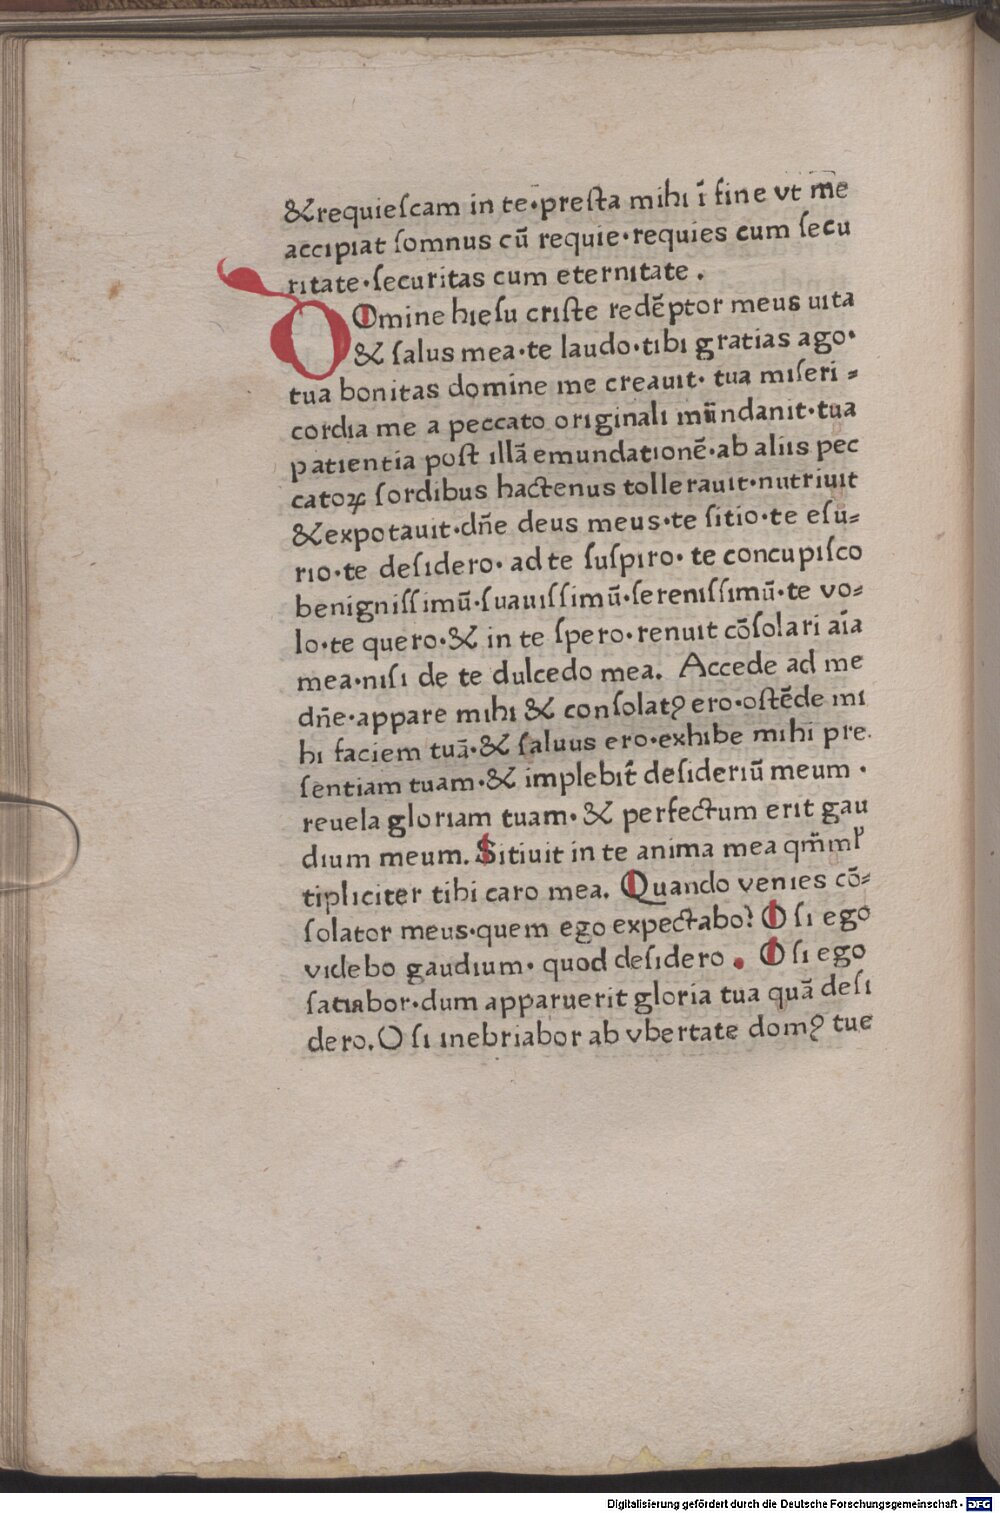 &requieſcam in te·preſta mihi ī fine vt me
accipiat ſomnus cū requie·requies cum ſecu
ritate·ſecuritas cum eternitate.
DOmine hieſu criſte redēptor meus uita
& ſalus mea·te laudo·tibi gratias ago·
tua bonitas domine me creauit· tua miſeri⸗
cordia me a peccato originali mūndanit·tua
patientia poſt illā emundationē·ab aliis pec
catoꝝ ſordibus hactenus tollerauit·nutriuit
&expotauit·dn̄e deus meus·te ſitio·te eſu⸗
rio·te deſidero· ad te ſuſpiro· te concupiſco
benigniſſimū·ſuauiſſimū·ſereniſſimū·te vo⸗
lo·te quero·& in te ſpero·renuit cōſolari aīa
mea·niſi de te dulcedo mea. Accede ad me
dn̄e·appare mihi & conſolatꝰ ero·oſtēde mi
hi faciem tuā·& ſaluus ero·exhibe mihi pre
ſentiam tuam·& implebit̄ deſideriū meum ·
reuela gloriam tuam· & perfectum erit gau
dium meum. Sitiuit in te anima mea qm̄ml̓
tipliciter tibi caro mea. Quando venies cō⸗
ſolator meus·quem ego expectabo? O ſi ego
videbo gaudium· quod deſidero . O ſi ego
ſatiabor·dum apparuerit gloria tua quā deſi
dero. O ſi inebriabor ab vbertate domꝰ tue
Digitalisierung gefördert durch die Deutsche Forschungsgemeinschaft - DFG